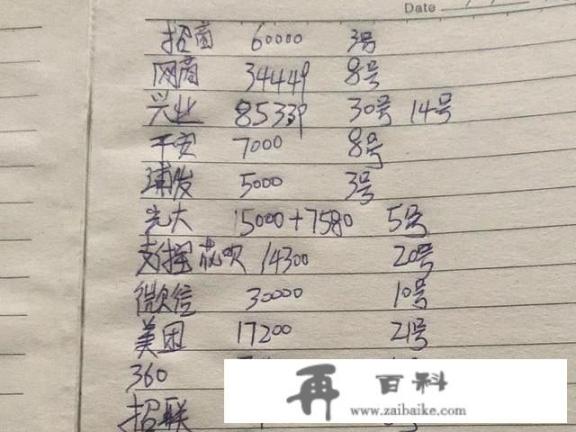 Date
招商 60000 3号
网商 34449 8号
兴业 85339 30号 14号
平安 7000 8号
浦发 5000 3号
光大 15000+7580 5号
支付宝 花呗 14300 20号
微信 30000 10号
美团 17200 21号
360
招联
再 百科
www.zaibaike.com